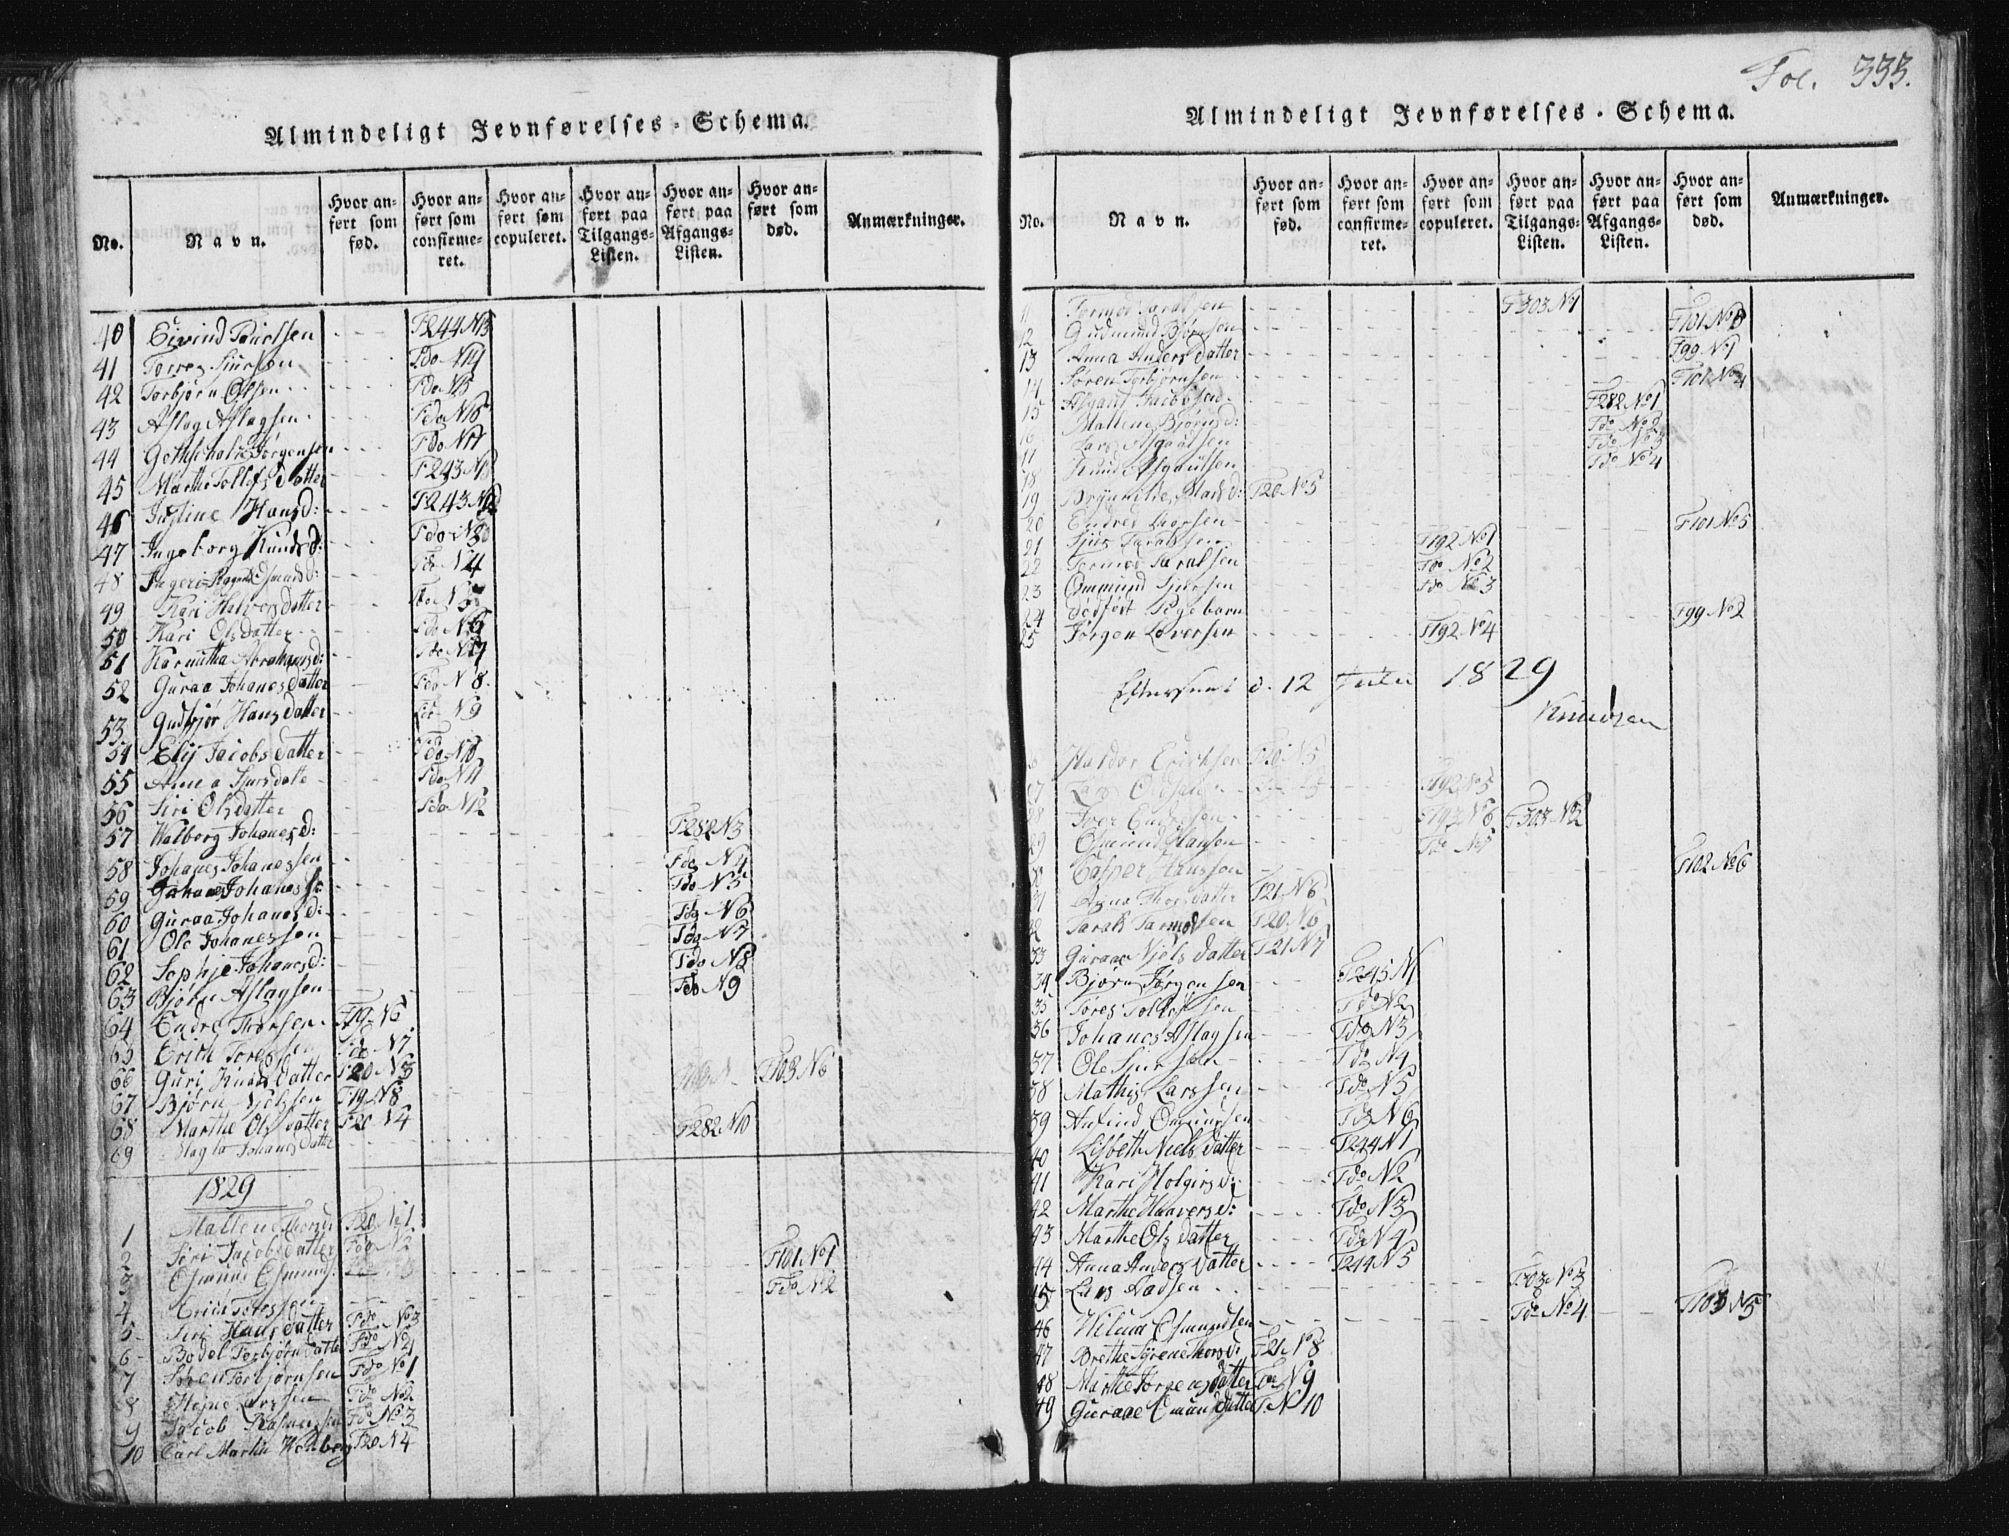 Almindeligt Jevnførelses-Schema.
No. Navn. Hvor anført som fød. Hvor anført som confirmeret. Hvor anført som copuleret. Hvor anført paa Tilgangs-Listen. Hvor anført paa Afgangs-Listen. Hvor anført som død. Anmærkninger.
40 Eivind Paulsen F244 N13
41 Torres Siursøn Fdo N14
42 Torbjørn Olsen Fdo N15
43 Aslag Aslagsen Fdo N16
44 Jørgensen Fdo N17
45 Marthe Tollefsdatter F243 N1
46 Justine Hansd: F243 N2
47 Ingeborg Knudsd: Fdo N3
48 Ingeri Fdo N4
49 Kari Halversdatter Fdo N5
50 Kari Olsdatter Fdo N6
51 Abrahamsd: Fdo N7
52 Guraa Johanesdatter Fdo N8
53 Gudbjør Hansdatter Fdo N9
54 Elij Jacobsdatter Fdo N10
55 Anna Sjursdatte Fdo N11
56 Siri Olsdatter Fdo N12
57 Walborg Johanesd: F282 N3
58 Johanes Johanessen Fdo N4
59 Johanes Fdo N5
60 Guraa Johanesd: Fdo N6
61 Ole Johanessøn Fdo N7
62 Sophje Johanesd: Fdo N8
63 Bjørn Aslagsen Fdo N9
64 Endre Thorsen F19 N6
65 Erich Toressen Fdo N7
66 Guri Knudsdatter F20 N3 F103 N6
67 Bjørn Njelssen F19 N8
68 Marthe Olsdatter F20 N4 F282 N10
69 Johanesdatte
1829
1 Mallene Thorsd: F20 N1
2 Siri Jacobsdatter Fdo N2
3 Osmund Osmunds. F101 No1
4 Erich Toressen Fdo N2
5 Siri Hansdatter Fdo No3
6 Bodel Torbjørnsdatte Fdo No4
7 Søren Torbjørnsen Fdo No1
8 Larssen Fdo No2
9 Jacob Rasmussen Fdo No3
10 Carl Martin F20 N4
Fol. 333.
Almindeligt Jevnførelses-Schema.
No. Navn. Hvor anført som fød. Hvor anført som confirmeret. Hvor anført som copuleret. Hvor anført paa Tilgangs-Listen. Hvor anført paa Afgangs-Listen. Hvor anført som død. Anmærkninger.
11 Tormod Taralsen F303 No1
12 Gudmund Bjørnsøn F101 No3
13 Anna Andersdatter F99 No1
14 Søren Torbjørnsen F101 No4
15 Asgaut Jacobsen F282 No1
16 Mallene Bjørnsd: Fdo No2
17 Lars Asgautsen Fdo No3
18 Knud Asgautsen Fdo No4
19 Madsd: F20 No5
20 Endre Thorsen F101 No5
21 Sjur Taralssen F192 No1
22 Tormod Taralsen Fdo No2
23 Ommund Sjursen Fdo No3
24 dødfødt Pigebarn F99 No2
25 Jørgen Laversen F192 No4
d. 12 1829
Knudsen
26 Haldor Ericksen F20 N5
27 Lars F192 No5
28 Iver F192 N6 F303 No2
29 Osmund Hansen Fdo No7
30 Casper Hanssøn F102 No6
31 Anna Thorsdatter F21 N6
32 Taral Tarmodsen F20 N6
33 Guraae Njelsdatter F21 N7
34 Bjørn Jørgensen F245 N1
35 Tores Tollefsen Fdo N2
36 Johanes Aslagsen Fdo N3
37 Ole Sjursøn Fdo N4
38 Mathis Larssen Fdo N5
39 Fdo N6
40 Lisbeth Nielsdatter F244 N1
41 Kari Holgirsd: Fdo N2
42 Marthe Haaversd: Fdo N3
43 Marthe Olsdatter Fdo N4
44 Anna Andersdatter F244 N5
45 Lars Ladsen F303 No3
46 Osmundsen Fdo No4 F103 N5
47 Brethe Thorsd: F21 N8
48 Marthe Jørgensdatter Fdo N9
49 Guraae Osmundsdatter F N10